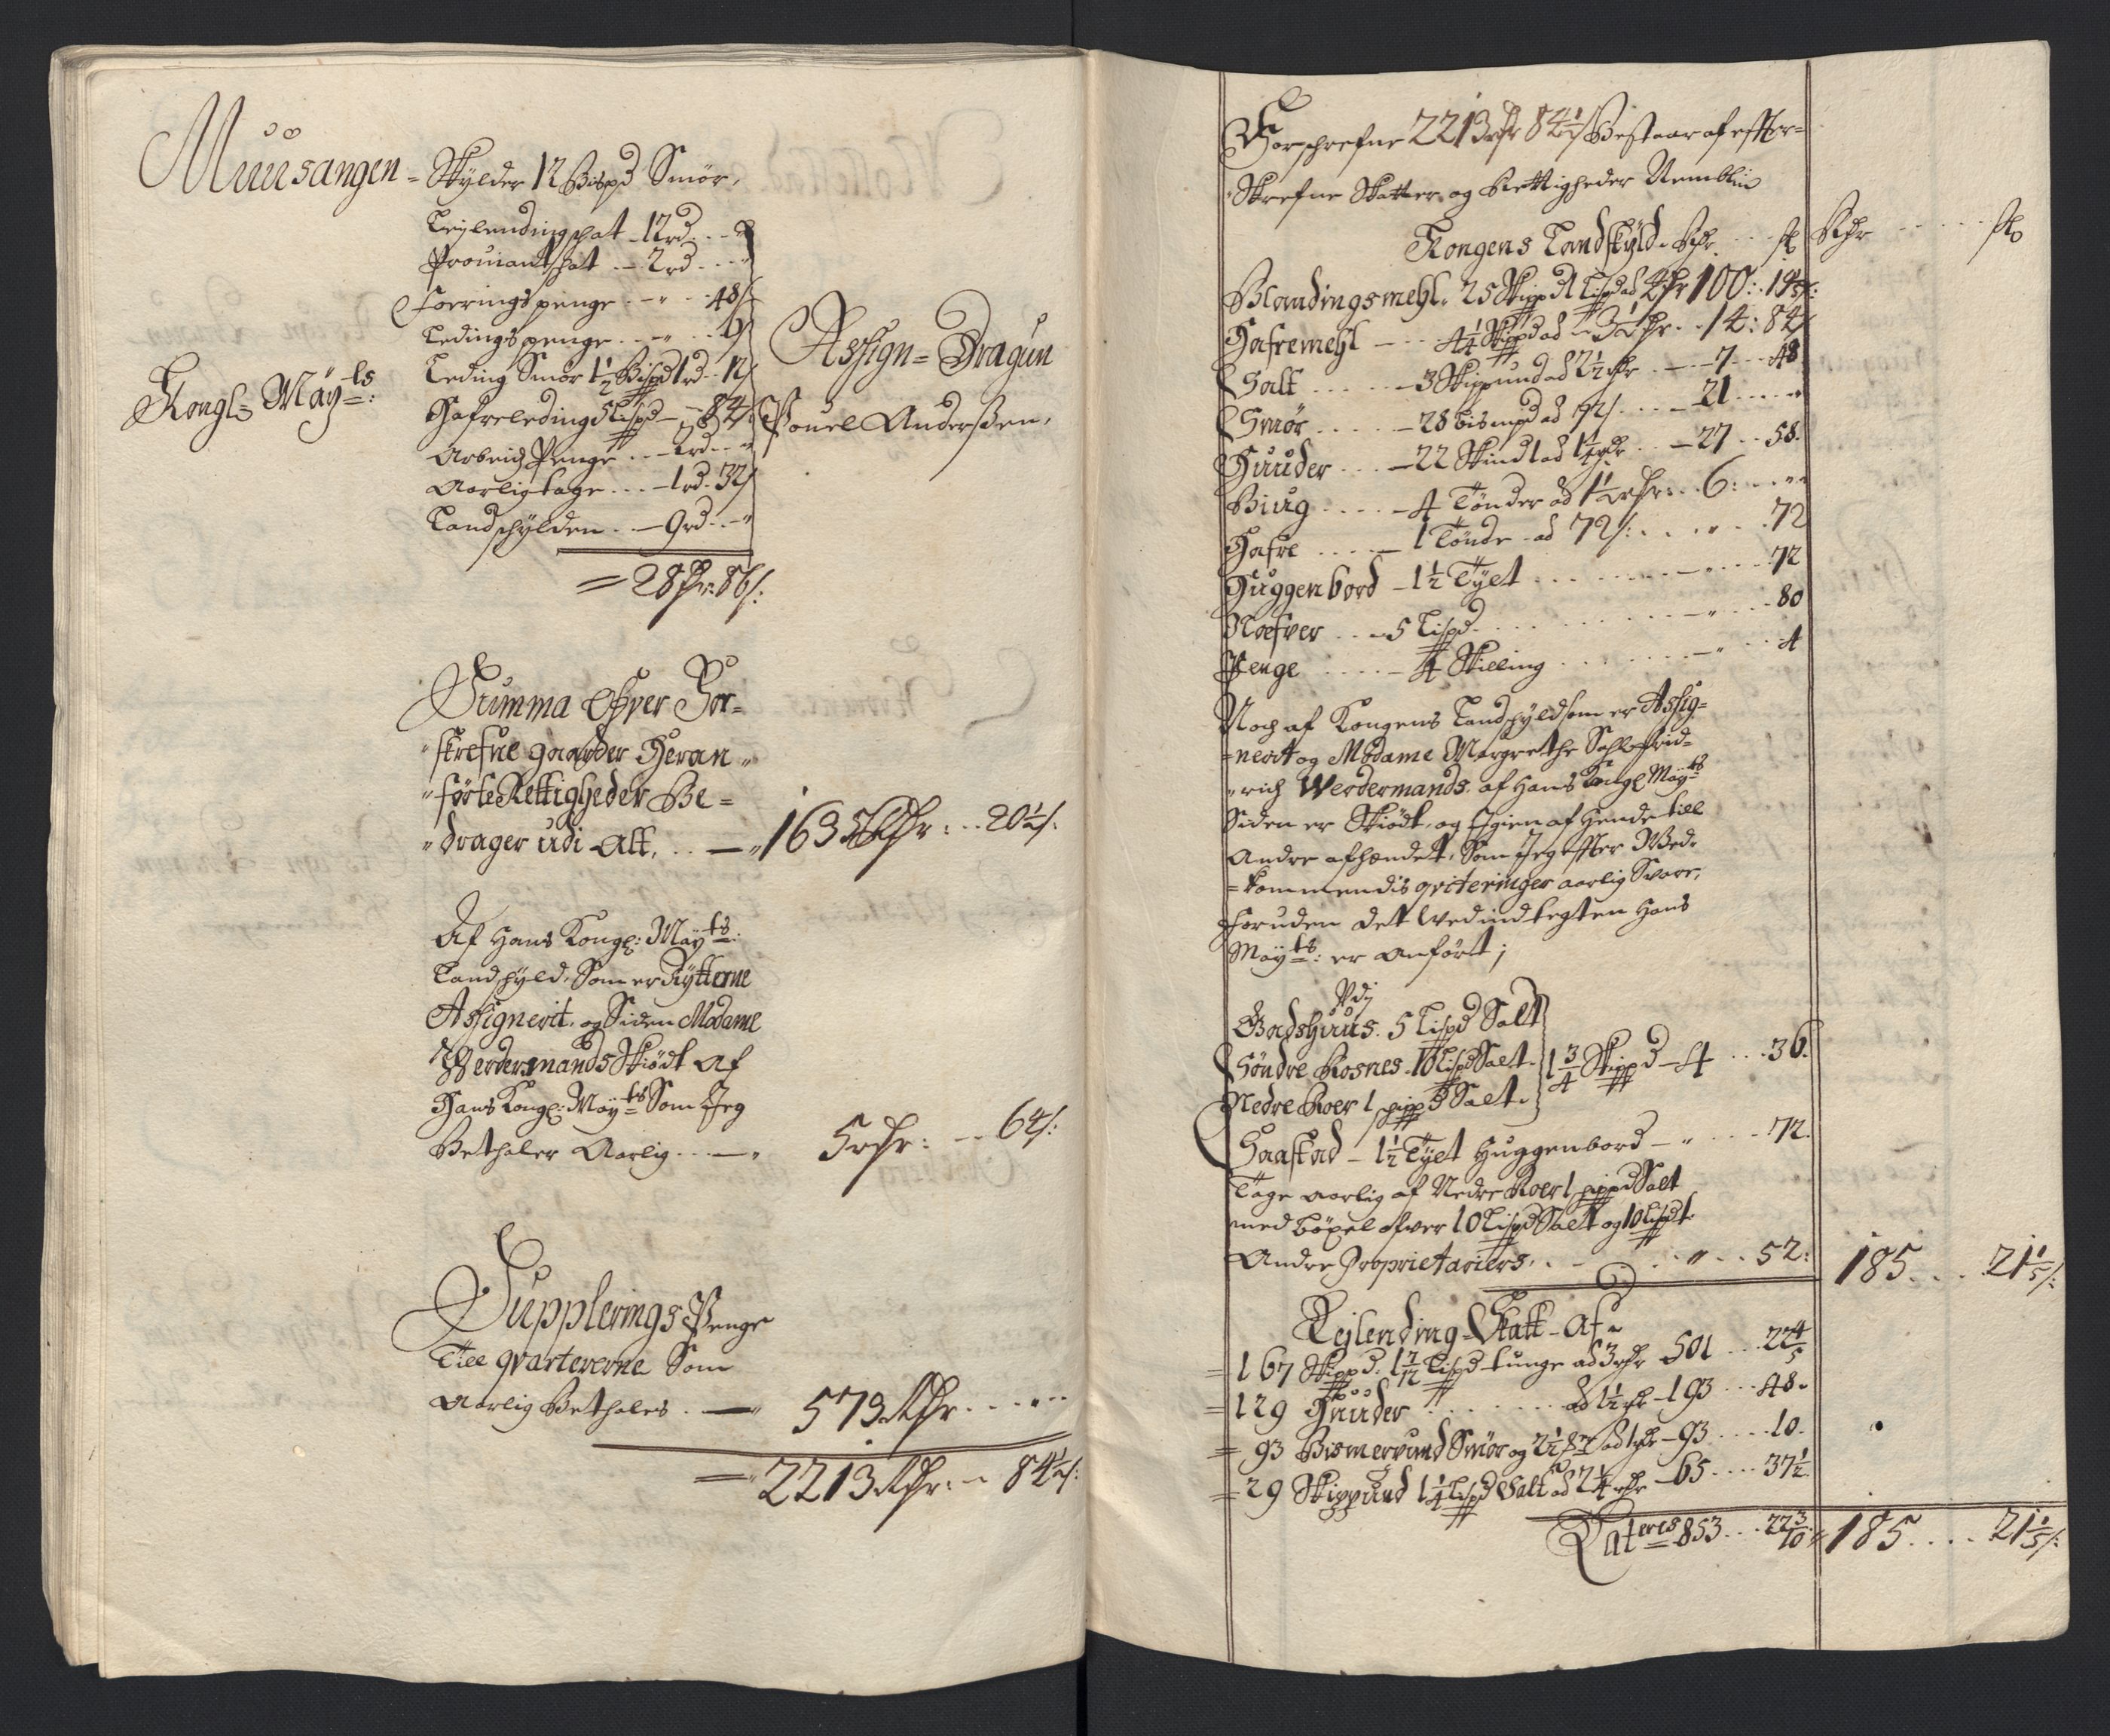 Muusangen = Skylder 12 Bispd Smør,
Leylendingschat - 12 rd - - "
Prouiantschat - - 2 rd - - -
Foeringspenge - - " - - 48 s
Ledingspenge - - - " - -
Kongl: Mäy<sup>ts</sup>:
Leding Smør 1½ Bispd 1 rd - 12 s
Hafreleding 5 Lispd - " - 84 s
Arbeidz Penge - - - 2 rd - - "
Aarligtage - - - 1 rd - 32 s
Landschylden - - - 9 rd - - "
= 28 Rdr: 86 s:
Assign = Dragun
Pouel Anderßen,
Summa Ofver For=
skrefne gaarder Heran
førte Rettigheder Be=
drager udi Alt, - - - " 1635 Rdr: - - 20½ s:
Af Hans Kongl: Mäy<sup>ts</sup>:
Landschyld, Som er Rytterne
Assignerit, og Siden Madame
Werdermands Skiødt Af
Hans Kongl: Mäy<sup>ts</sup> Som Jeg
Bethaler Aarlig - - - " 5 rdr: - - 64 s:
Supplerings Penge
Till qvartererne Som
Aarlig Bethales - - " 573 Rdr - - - " - -
= " 2213 Rdr: - 84½ s:
Forschrefne 2213 rdr 84½ s Bestaar af effter=
Skrefne Skatter og Rettigheder Nemblig
Kongens Landskyld - Rdr - - - s Rdr - - - - - s
Blandingsmehl - 25 Skippd 1 Lispd ad 4 rdr 100: - 19⅕ s:
Hafremehl - - - 4¼ Skippd ad - 3½ rdr - - 14: 84 s
Salt - - - - - 3 Skippund ad 2½ rdr - - - 7 - - 48
Smør - - - - - 28 bismpd ad 72 s - - - - 21 - - - "
Huuder - - - 22 Skind ad 1¼ rdr - - - 27 - - 58.
Biug - - - - - 4 Tønder ad 1½ rdr: - - 6: - - - "
Hafre - - - - 1 Tønde - ad 72 s: - - - " - - - 72
Huggenbord - 1½ Tylt - - - - - - - - " - - - 72
Nefver - - - 5 Lispd - - - - - - - " - - - 80
Penge - - - - 4 Skilling - - - - - - " - - - 4
Noch af Kongens Landschyld som er Assig=
=nerit og Madame Margrethe Sahl Frid=
rich Werdermands af Hans Kongl Mäy<sup>ts</sup>
Siden er Skiødt, og Igien af Hende till
Andre afhændet, Som Jeg effter Wed=
=kommendis qviteringer aarlig Svare,
Foruden det Wed indtegten Hans
Mäy<sup>ts</sup>: er anført;
Udj
Gudshuus. 5 Lispd Salt
Søndre Rosnes - 10 Lispd Salt - 1¾ Skippd - 4 - - - 36.
Nedre Roer 1 schippd Salt.
Haastad - 1½ Tylt Huggenbord - " - - - 72.
Tage aarlig af Nedre Roer 1 schippd Salt
med bøxel ofver 10 Lispd Salt og 10 Lispd t
Andre Proprietariers, - - - - " - - 52: 185 - - - 21⅕ s:
Leylending = Skatt - Af =
= 167 Skippd: 1 7/12 Lispd tunge ad 3 rdr 501 - - - 22⅘
= 129 Huuder - - - - - - ad 1½ rdr - 193 - - - 48 -
= 93 Bismerpund Smør og 2½ ad 1 rdr - 93 - - - - 10.
= 29 Skippund 1¼ Lispd Salt ad 2¼ rdr - 65 - - - 37½
Lateris 853 - - - 22 3/10 = 185 - - - - 21⅕ s: